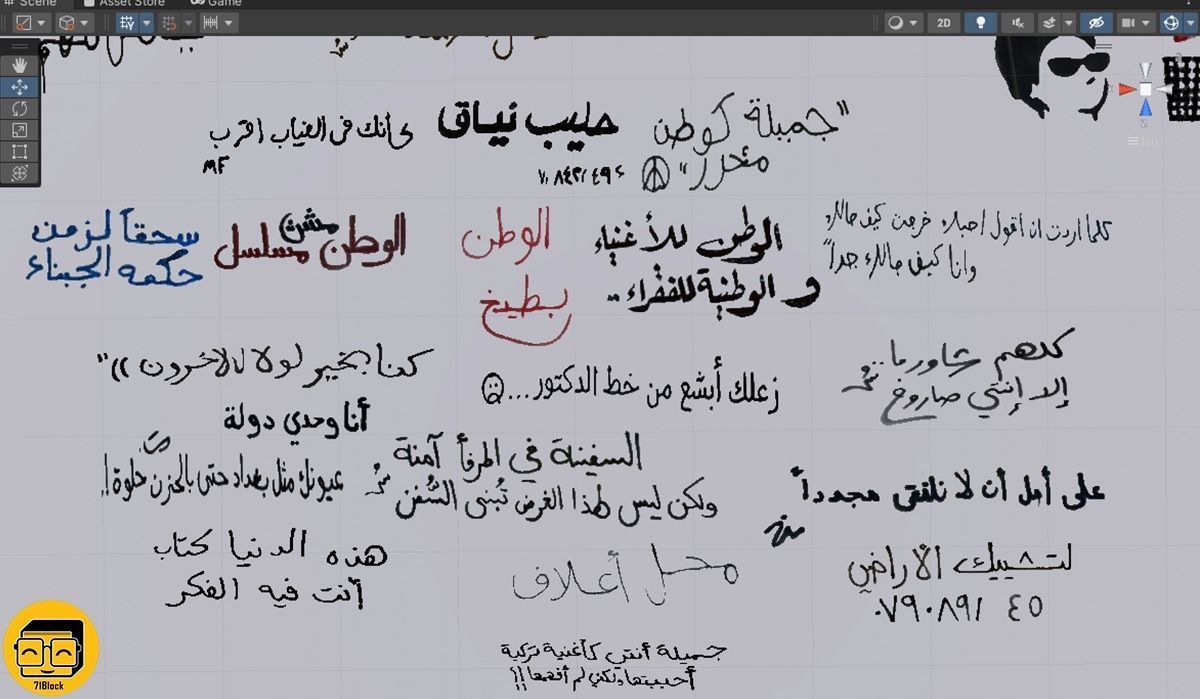 Scene
Asset Store
Game
2D
Iso
"جميلة كوطن
متحرر"
حليب نياق
كأنك في الغياب اقرب
MF
كلما اردت ان اقول احبك خرجت كيف حالك
وانا كيف حالك جداً
الوطن للأغنياء
و الوطنية للفقراء ..
الوطن
بطيخ
الوطن مش مسلسل
سحقاً لزمن
حكمه الجبناء
كلهم شاورما..
إلا إنتي صاروخ
زعلك أبشع من خط الدكتور...
كنا بخير لولا الآخرون ))"
أنا وحدي دولة
السفينة في المرفأ آمنة
ولكن ليس لهذا الغرض تُبنى السُفن
عيونك مثل بغداد حتى بالحزن حلوة!
على أمل أن لا نلتقي مجدداً
لتشييك الأراضي
٠٧٩٠٨٩١ ٤٥
محل أعلاف
هذه الدنيا كتاب
أنت فيه الفكر
جميلة أنتي كأغنية تركية
أحببتها ولكني لم أفهمها!!
71Block